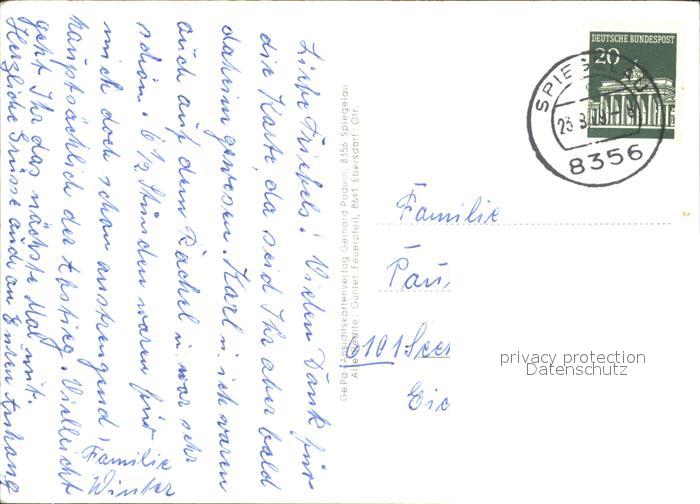 Liebe Friebels! Vielen Dank für
die Karte, da seid Ihr aber bald
daheim gewesen. Karl u. ich waren
auch auf dem Rachel u. war sehr
schön. 6 1/2 Stunden waren für
mich doch schon anstrengend,
hauptsächlich der Abstieg. Vielleicht
geht Ihr das nächste Mal mit.
Herzliche Grüsse auch an Euren Anhang
Familie
Winter
GePa/Ansichtskartenverlag Gerhard Paduch, 8356 Spiegelau
Alle Rechte: Günter Feuerpfeil, 8641 Ebersdorf Ofr.
DEUTSCHE BUNDESPOST
20
SPIEGELAU
23.8.
8356
Familie
Pau
6101 See
Eic
privacy protection
Datenschutz